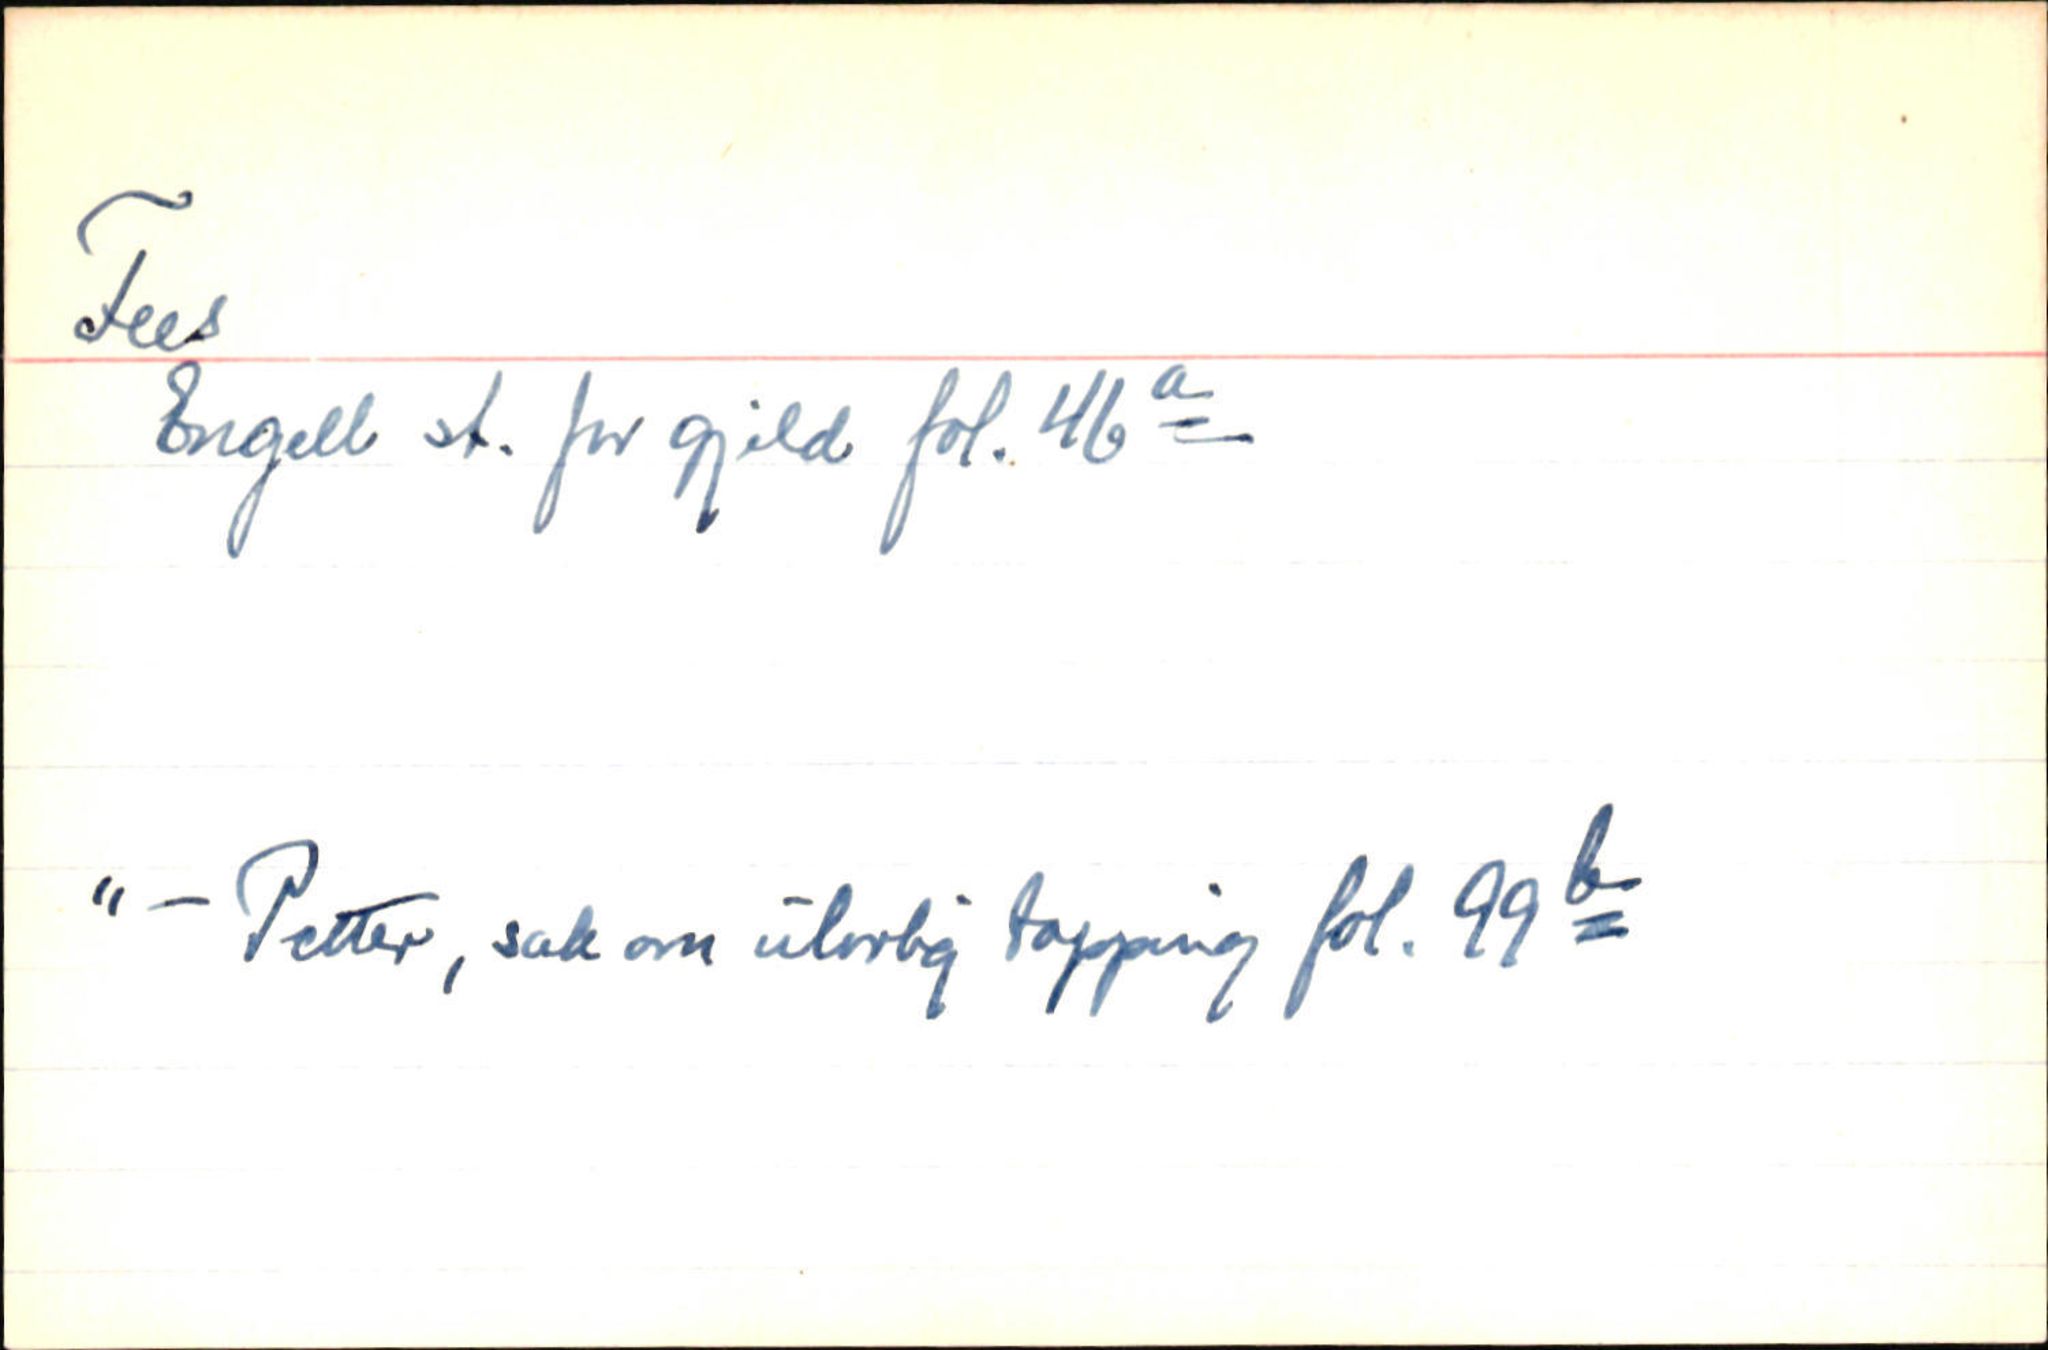 Fees
Engell st. for gjeld fol. 46ª
"- Petter, sak om ulovlig tapping fol. 99b